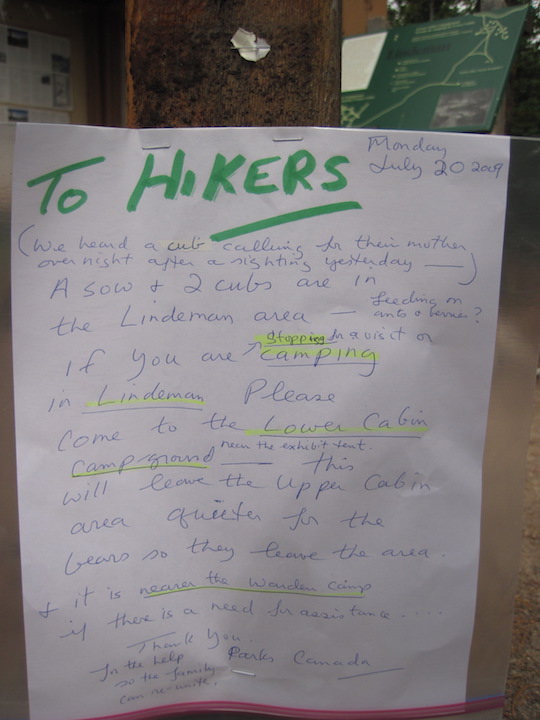 Monday
July 20 2009
To HIKERS
(We heard a cub calling for their mother
overnight after a sighting yesterday —)
A sow & 2 cubs are in
the Lindeman area — feeding on
ants & berries?
If you are stopping for a visit or
camping
in Lindeman Please
come to the Lower Cabin
campground near the exhibit tent.
— this
will leave the Upper Cabin
area quieter for the
bears so they leave the area.
& it is nearer the warden camp
if there is a need for assistance....
Thank you.
for the help
so the family
can re-unite.
Parks Canada